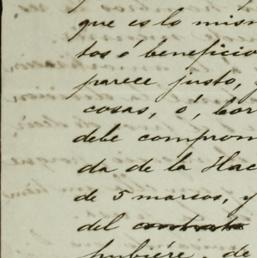 que es lo mism
tos ó beneficio
parece justo, y
cosas, ó, bor
debe comprom
da de la Hac
de 5 marcos, y
del contrato
hubiére, de